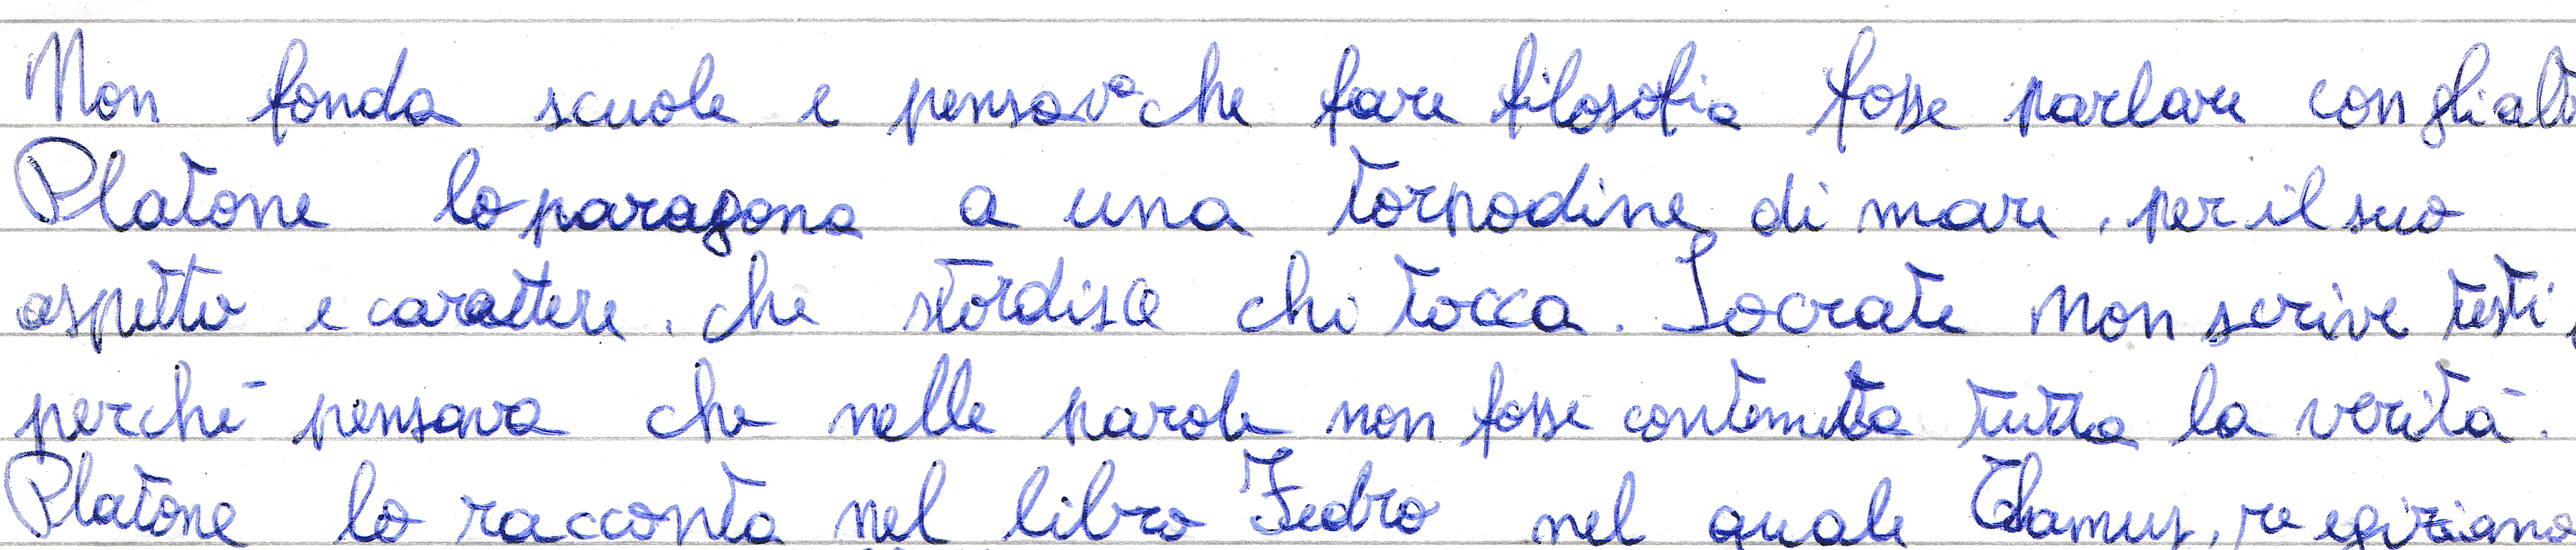 Non fonda scuole e pensava che fare filosofia fosse parlare con gli
Platone lo paragona a una torpodine di mare, per il suo
aspetto e carattere, che stordisce chi tocca. Socrate non scrive testi,
perché pensava che nelle parole non fosse contenuta tutta la verità.
Platone lo racconta nel libro Fedro nel quale Thamus, re egiziano